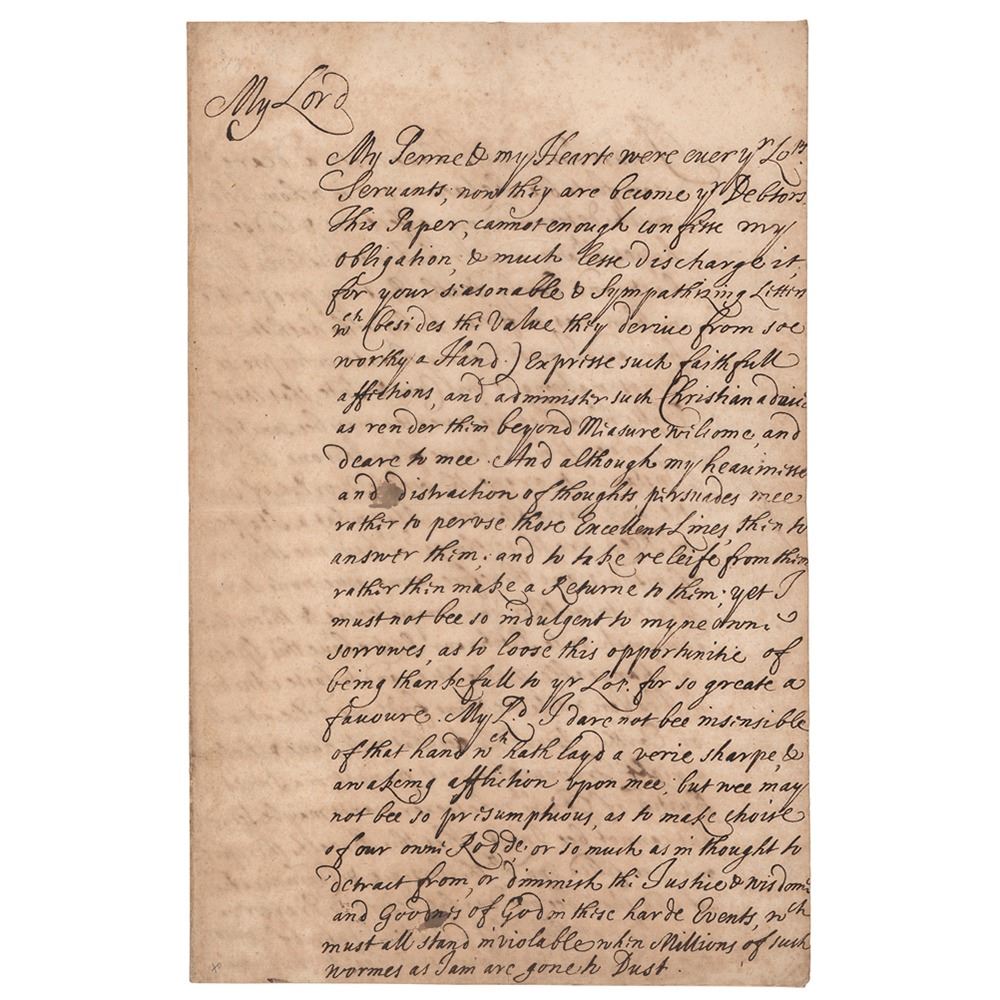 My Lord
My Penne & my Hearte were ever yr Lopps
Servants, now they are become yr Debtors
This Paper, cannot enough confesse my
obligation, & much lesse discharge it,
for your seasonable & Sympathizing Letters
wch (besides the Value they derive from soe
worthy a Hand.) Expresse such faithfull
affections, and administer such Christian advice
as render them beyond Measure welcome, and
deare to mee. And although my heavinesse
and distraction of thoughts persuades mee
rather to peruse those Excellent Lines, then to
answer them; and to take releife from them
rather then make a Returne to them; yet I
must not bee so indulgent to myne owne
sorrowes, as to loose this opportunitie of
being thankefull to yr Lop. for so greate a
favoure. My Ld. I dare not bee insensible
of that hand wch hath layd a verie sharpe, &
awaking affliction upon mee, but wee may
not bee so presumptuous, as to make choise
of our owne Rodde, or so much as in thought to
detract from, or diminish the Justice & wisdome
and Goodnes of God in these harde Events, wch
must all stand inviolable when Millions of such
wormes as I am are gone to Dust.